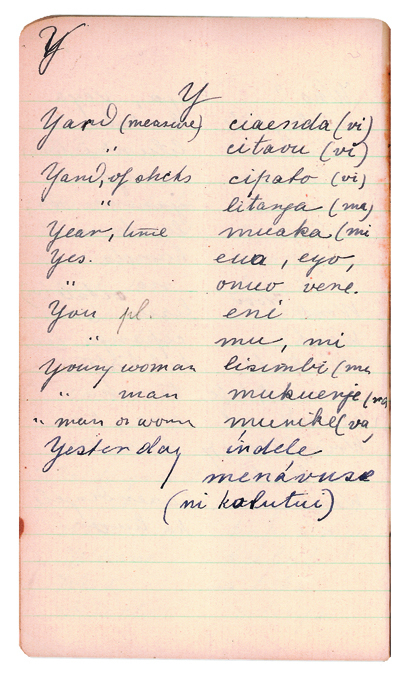 Y
Y
Yard (measure) ciaenda (vi)
" citavu (vi)
Yard, of sticks cipato (vi)
" litanga (ma)
Year, time muaka (mi
Yes. eua, eyo,
" omuo vene.
You pl. eni
" mu, mi
Young woman lisimbi (ma
" man mukuenje (va
" man or woman munike (va,
Yesterday índele
menávuse
(ni kalutui)